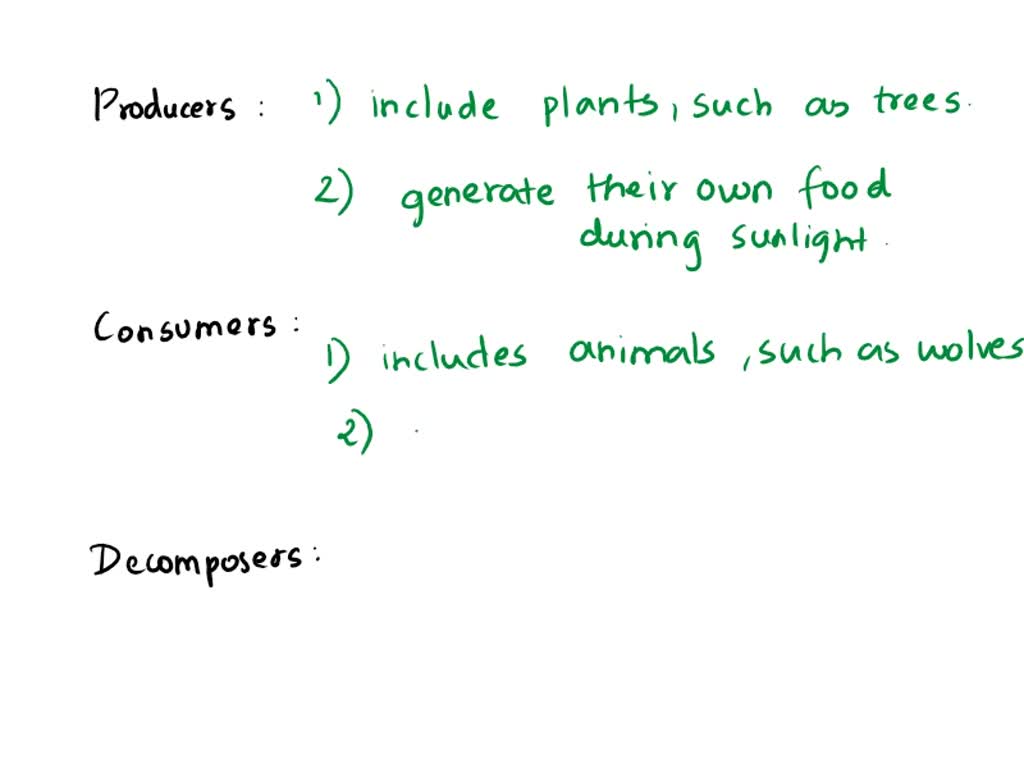 Producers : 1) include plants, such as trees.
2) generate their own food
during sunlight.
Consumers :
1) includes animals, such as wolves
2)
Decomposers :